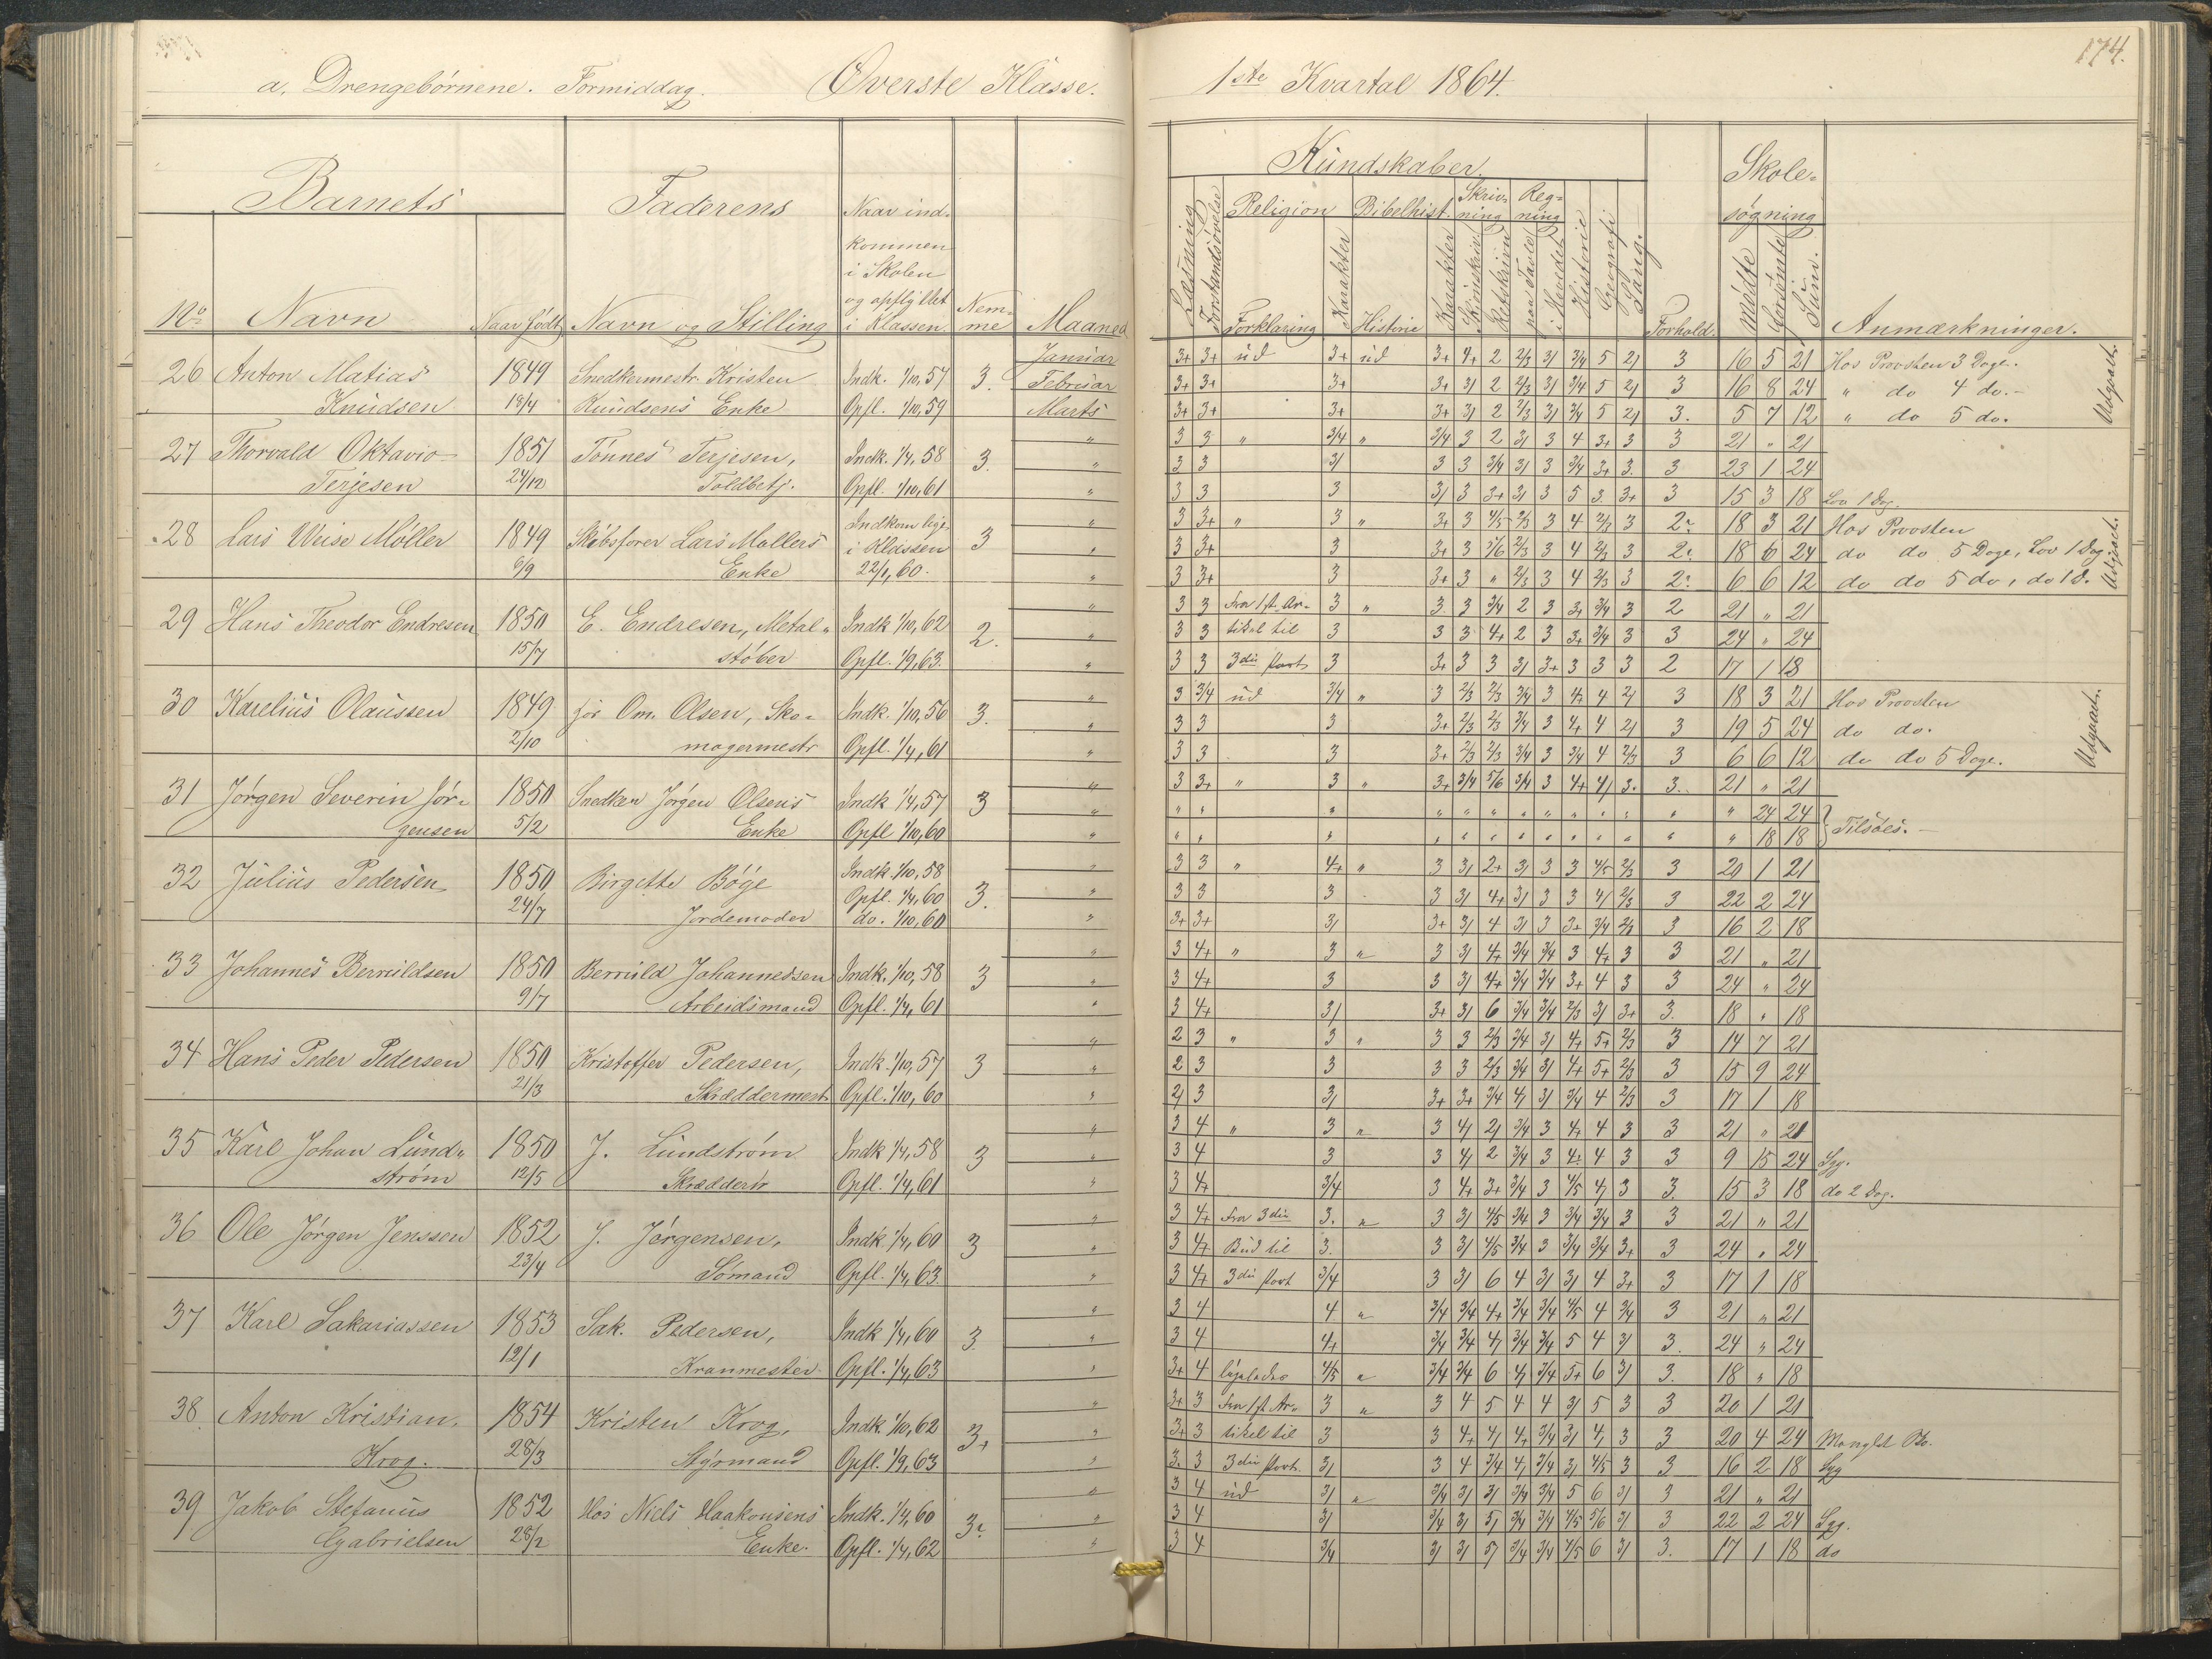 a. Drengebørnene. Formiddag. Øverste Klasse.
Barnets Faderens
No Navn Naar født Navn og Stilling Naar ind- kommen i Skolen og opflyttet i Klassen Nem- me Maaned
26 Anton Matias 1849 Snedkermestr. Kristen Indk. 1/10,57 3. Januar
Februar
Knudsen 18/4 Knudsens Enke Opfl. 1/10,59 Marts
27 Thorvald Oktavio 1851 Tønnes Terjesen, Indk. 1/4,58 3. "
Terjesen 24/12 Toldbetj. Opfl. 1/10,61 "
28 Lars Weise Møller 1849 Skibsfører Lars Møllers Indkom lige i Klassen 3 "
6/9 Enke 22/1,60. "
29 Hans Theodor Endresen 1850 E. Endresen, Metal- Indk 1/10,62 2. "
15/7 støber Opfl. 1/9,63. "
30 Karelius Olaussen 1849 Om. Olsen, Sko- Indk. 1/10,56 3. "
2/10 magermestr Opfl. 1/4,61 "
31 Jørgen Severin Jør- 1850 Snedker Jørgen Olsens Indk 1/4,57 3 "
gensen 5/2 Enke Opfl 1/10,60 "
32 Julius Pedersen 1850 Birgitte Bøge Indk. 1/10,58 3. "
24/7 Opfl. 1/4,60 "
Jordemoder do. 1/10,60 "
33 Johannes Berruldsen 1850 Berruld Johannessen Indk. 1/10,58 3 "
9/7 Arbeidsmand Opfl. 1/4,61 "
34 Hans Peder Pedersen 1850 Kristoffer Pedersen, Indk. 1/10,57 3 "
21/3 Skræddermest Opfl. 1/10,60 "
35 Karl Johan Lund- 1850 J. Lundstrøm Indk 1/4,58 3 "
strøm 12/5 Skrædder Opfl. 1/4,61 "
36 Ole Jørgen Jenssen 1852 J. Jørgensen, Indk 1/4,60 3 "
23/4 Sømand Opfl. 1/4,63 "
37 Karl Sakariassen 1853 Sak. Pedersen, Indk 1/4,60 3. "
12/1 Kranmester Opfl. 1/4,63 "
38 Anton Kristian 1854 Kristen Krog, Indk. 1/10,62 3+ "
Krog. 28/3 Styrmand Opfl. 1/9,63 "
39 Jakob Stefanus 1852 Hos Niels Haakonsens Indk. 1/4,60 3. "
Gabrielsen 28/2 Enke. Opfl. 1/4,62 "
174.
1ste Kvartal 1864.
Kundskaber. Skole- søgning
Læsning Forstandsøvelse Religion Bibelhist. Skriv- ning Reg- ning Historie Geografi Sang.
Forklaring Karakter Historie Karakter Skjønskriv Retskrivn paa Tavle i Hovedet Forhold. Mødte Forsømte Sum. Anmærkninger.
3+ 3+ ud 3+ ud 3+ 4+ 2 2/3 3/ 3/4 5 2/ 3 16 5 21 Hos Provsten 3 Dage.
3+ 3+ 3+ 3+ 3/ 2 2/3 3/ 3/4 5 2/ 3 16 8 24 " do 4 do.
3+ 3+ 3+ 3+ 3/ 2 2/3 3/ 3/4 5 2/ 3. 5 7 12 " do 5 do.
Udgaaet.
3 3 " 3/4 " 3/4 3 2 3/ 3 4 3+ 3 3 21 " 21
3 3 3/ 3 3 3/4 3/ 3 3/4 3+ 3. 3 23 1 24
3 3 3 3/ 3 3+ 3/ 3 5 3 3+ 3 15 3 18 Lov 1 Dag.
3 3+ " 3 " 3+ 3 4/5 2/3 3 4 2/3 3 2. 18 3 21 Hos Provsten
3 3+ 3 3+ 3 5/6 2/3 3 4 2/3 3 2. 18 6 24 do do 5 Dage, Lov 1 Dag
3 3+ 3 3+ 3 " 2/3 3 4 2/3 3 2. 6 6 12 do do 5 do, do 1 d.
Udgaaet.
3 3 Fra 1st. Ar- 3 " 3 3 3/4 2 3 3+ 3/4 3 2 21 " 21
3 3 tikel til 3 3 3 4+ 2 3 3+ 3/4 3 3 24 " 24
3 3 3die Part 3 3+ 3 3 3/ 3+ 3 3 3 2 17 1 18
3 3/4 ud 3/4 " 3 2/3 2/3 3/4 3 4+ 4 2/ 3 18 3 21 Hos Provsten
3 3 3 3+ 2/3 2/3 3/4 3 4+ 4 2/ 3 19 5 24 do do.
3 3 3 3+ 2/3 2/3 3/4 3 3/4 4 2/3 3 6 6 12 do do 5 Dage.
Udgaaet.
3 3+ " 3 " 3+ 3/4 5/6 3/4 3 4+ 4/ 3. 3. 21 " 21
" " " " " " " " " " " " " 24 24
" " " " " " " " " " " " " 18 18 } Tilsøes.
3 3 " 4+ " 3 3/ 2+ 3/ 3 3 4/5 2/3 3 20 1 21
3 3 3 3 3/ 4+ 3/ 3 3 4/ 2/3 3 22 2 24
3+ 3+ 3/ 3+ 3/ 4 3/ 3 3+ 3/4 2/3 3 16 2 18
3 4+ " 3 " 3 3/ 4+ 3/4 3/4 3 4+ 3 3 21 " 21
3 4+ 3 3 3/ 4+ 3/4 3/4 3+ 4 3 3 24 " 24
3 4+ 3/ 3+ 3/ 6 3/4 3/4 2/3 3/ 3+ 3. 18 " 18
2 3 " 3 " 3 3 2/3 3/4 3/ 4+ 5+ 2/3 3 14 7 21
2 3 3 3 3 2/3 3/4 3/ 4+ 5+ 2/3 3 15 9 24
2/ 3 3/ 3+ 3+ 3/4 4/ 3/ 3/4 4 2/3 3 17 1 18
3 4 " 3 " 3 4/ 2/ 3/4 3 4+ 4 3 3 21 " 21
3 4 3 3 4/ 2 3/4 3 4+ 4 3 3 9 15 24 Syg.
3 4+ 3/4 3 4+ 3+ 3/4 3 4/5 4/ 3 3. 15 3 18 do 2 Dag.
3 4+ Fra 3die 3. " 3 3/ 4/5 3/4 3 3/4 3/4 3 3 21 " 21
3 4+ Bud til 3. 3 3/ 4/5 3/4 3 3/4 3/4 3+ 3 24 " 24
3 4+ 3die Part 3/4 3 3/ 6 4 3/ 3/ 4 3+ 3 17 1 18
3 4 4 " 3/4 3/4 4+ 3/4 3/4 4/5 4 3/4 3 21 " 21
3 4 4+ 3/4 3/4 4/ 3/4 3/4 5 4 3/ 3. 24 " 24
3+ 4 4/5 " 3/4 3/4 6 4/ 3/4 5+ 6 3/ 3. 18 " 18
3+ 3 Fra 1st Ar- 3 " 3 4 5 4 4 3/ 5 3 3 20 1 21
3+ 3 tikel til 3 3 4+ 4/ 4+ 3/4 3/ 4/ 3 3 20 4 24
3. 3 3die Part. 3/ 3 4 3/4 4/ 3/4 3/ 4/5 3 3 16 2 18 Syg
3 4 ud 3/ " 3/4 3/ 3/ 3/4 3/4 5 6 3/ 3 21 " 21
3 4 3/ 3/4 3/ 5/ 3/4 3/4 4/5 5/6 3/ 3 22 2 24 Syg.
3 4 3/4 3/ 3/ 5/ 3/4 3/4 4/5 6 3/ 3. 17 1 18 do